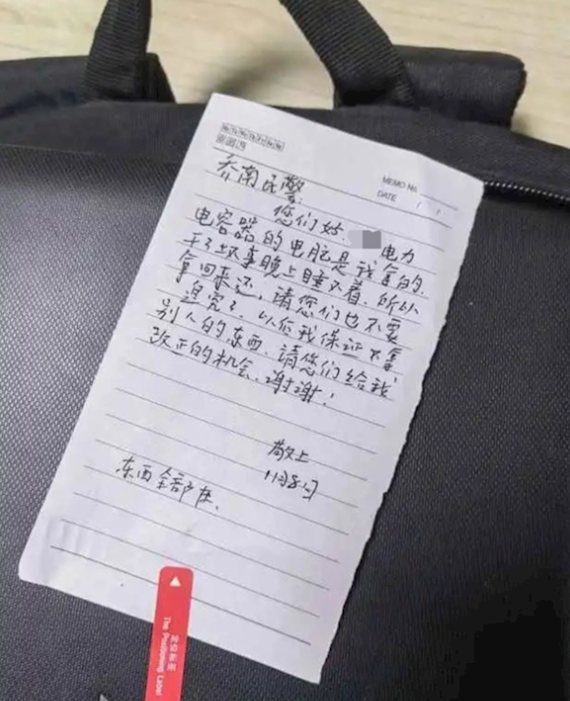 MEMO No.
DATE / /
乔南民警
您们好. 电力
电容器的电脑是我拿的.
干了坏事晚上睡不着. 所以
拿回来还, 请您们也不要
追究了. 以后我保证不拿
别人的东西. 请您们给我
改正的机会. 谢谢!
敬上
11月8日
东西全部在.
定位标签
The Positioning Label